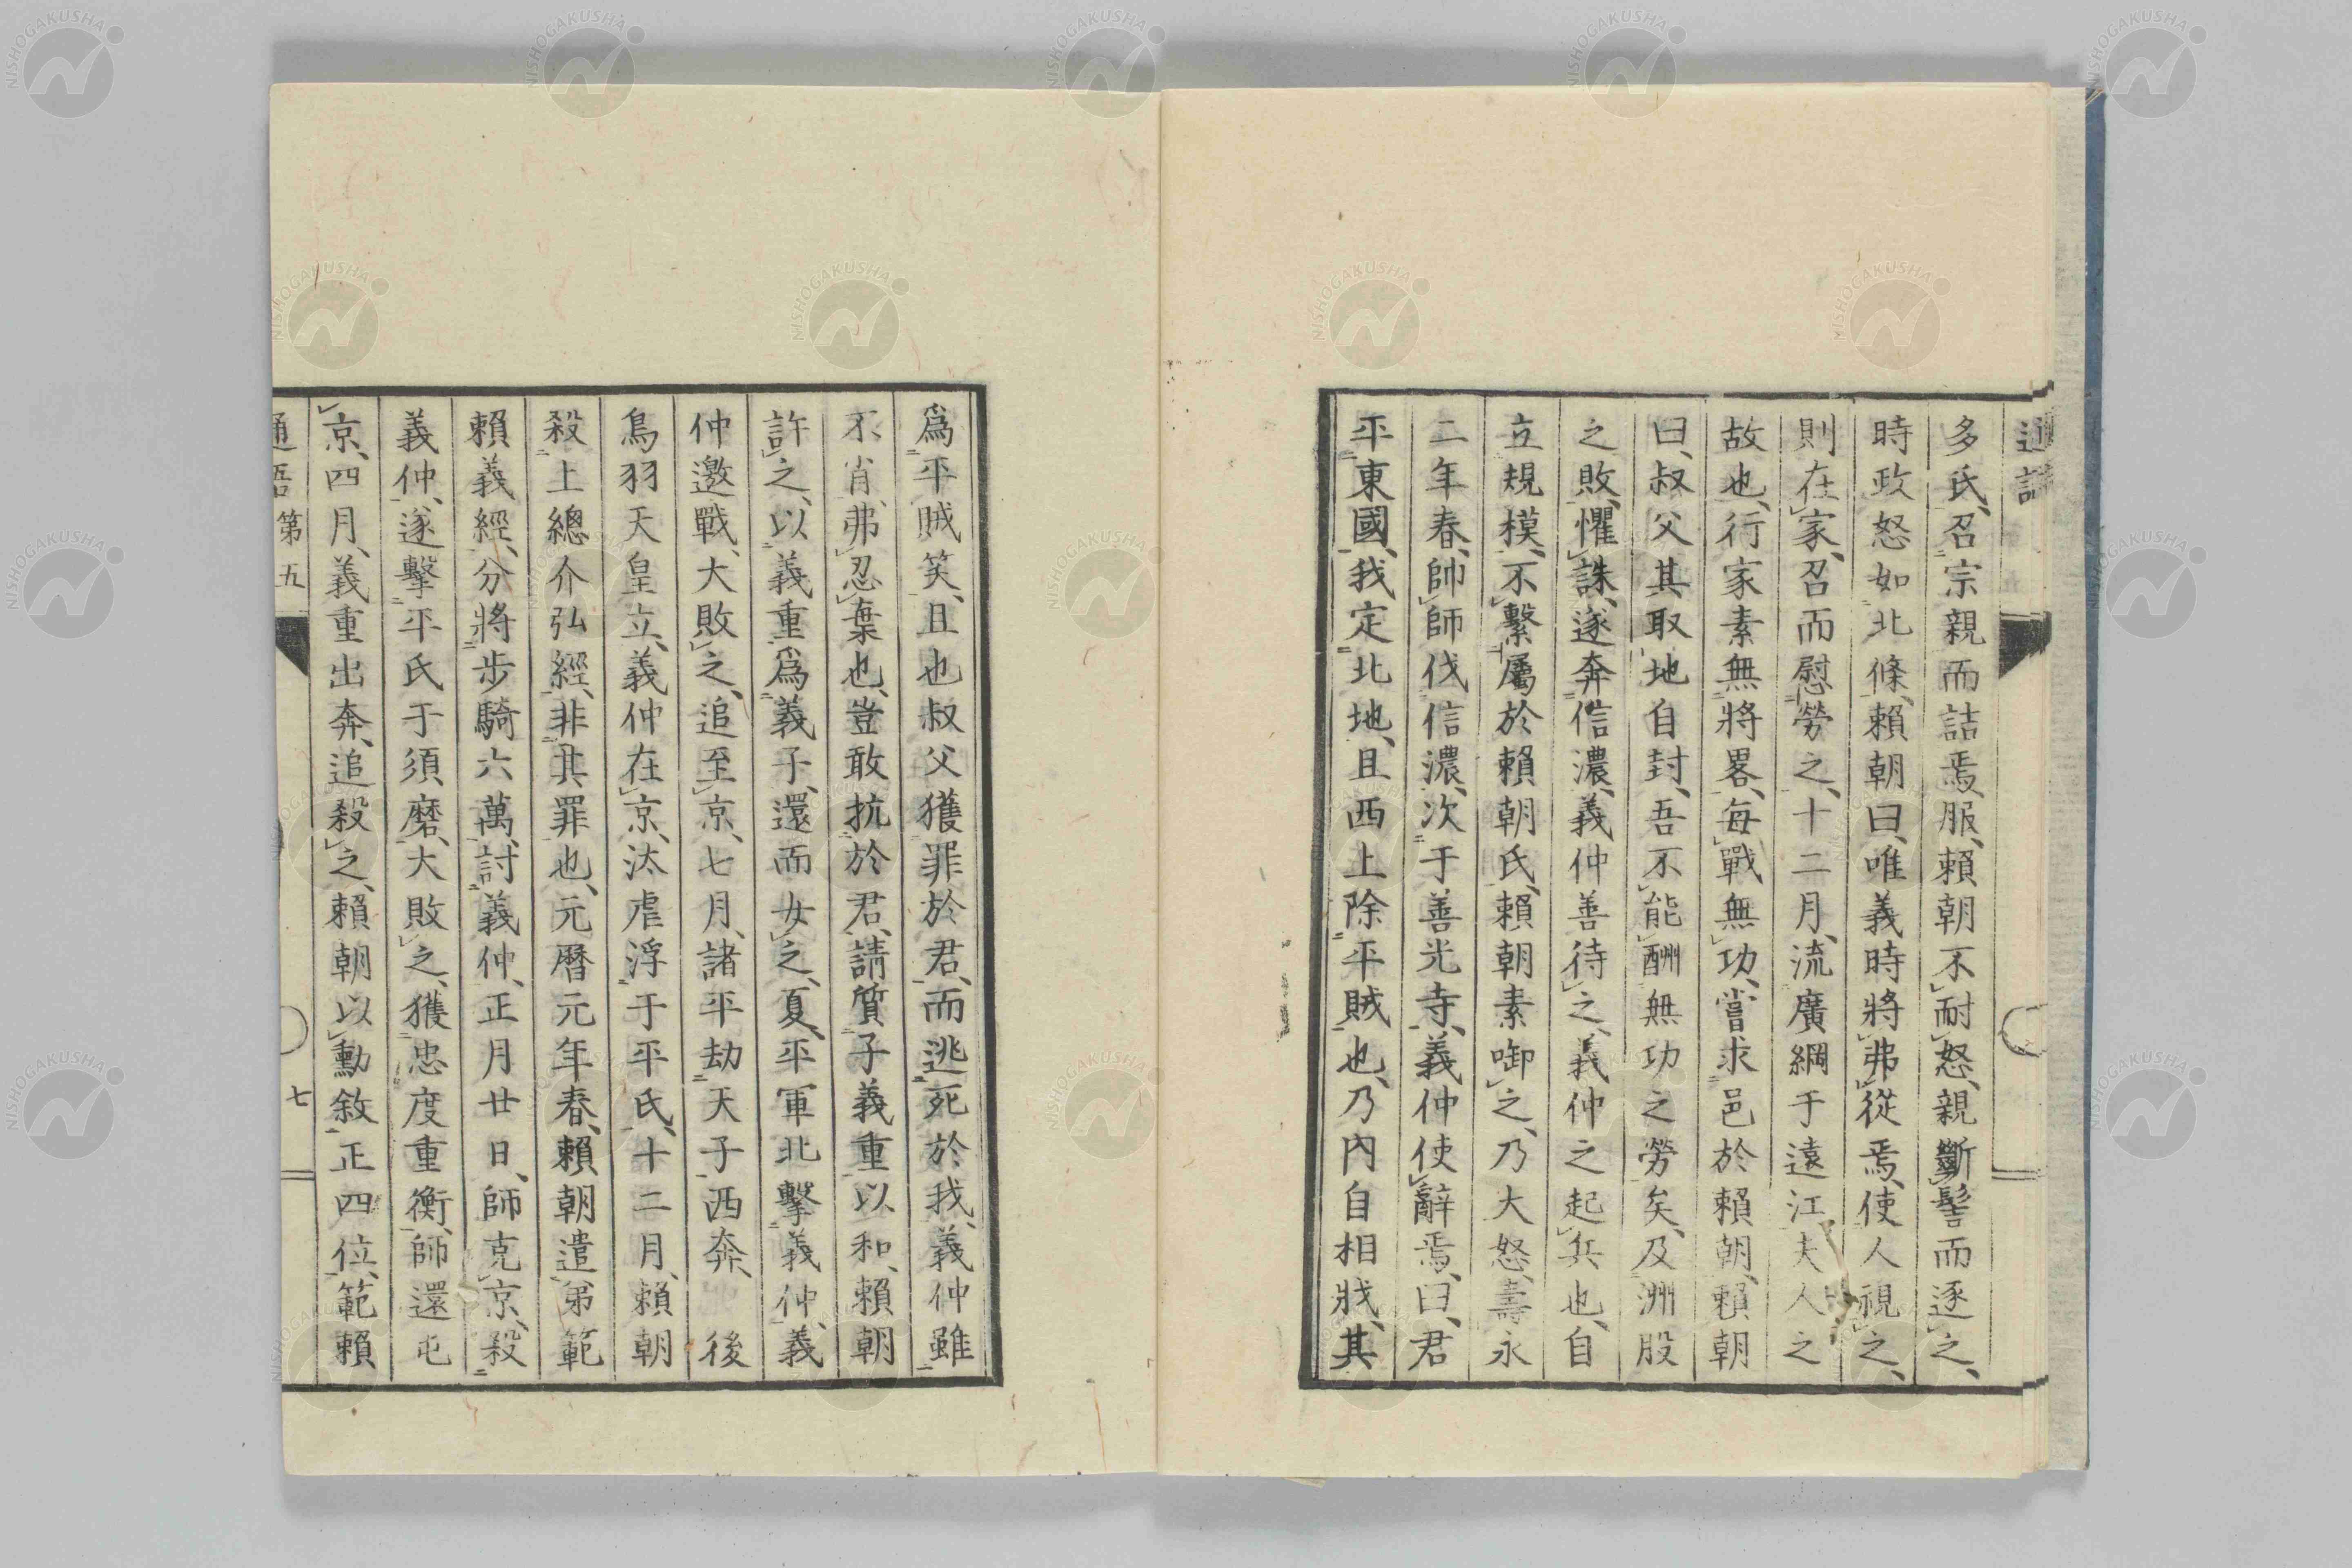 通語
多氏、召宗親而詰焉、服、賴朝不耐怒、親斷髻而逐之、
時政怒如北條、賴朝曰、唯義時將弗從焉、使人視之、
則在家、召而慰勞之、十二月、流廣綱于遠江、夫人之
故也、行家素無將畧、每戰無功、嘗求邑於賴朝、賴朝
曰、叔父其取地自封、吾不能酬無功之勞矣、及洲股
之敗、懼誅、遂奔信濃、義仲善待之、義仲之起兵也、自
立規模、不繫屬於賴朝氏、賴朝素啣之、乃大怒、壽永
二年春、帥師伐信濃、次于善光寺、義仲使辭焉、曰、君
平東國、我定北地、且西上除平賊也、乃內自相戕、其
爲平賊笑、且也叔父獲罪於君、而逃死於我、義仲雖
不肖、弗忍棄也、豈敢抗於君、請質子義重以和、賴朝
許之、以義重爲義子、還而女之、夏、平軍北擊義仲、義
仲邀戰、大敗之、追至京、七月、諸平劫天子西奔、後
鳥羽天皇立、義仲在京、汰虐浮于平氏、十二月、賴朝
殺上總介弘經、非其罪也、元曆元年春、賴朝遣弟範
賴義經、分將步騎六萬、討義仲、正月廿日、師克京、殺
義仲、遂擊平氏于須磨、大敗之、獲忠度重衡、師還屯
京、四月、義重出奔、追殺之、賴朝以勳敘正四位、範賴
通語第五
七
NISHOGAKUSHA